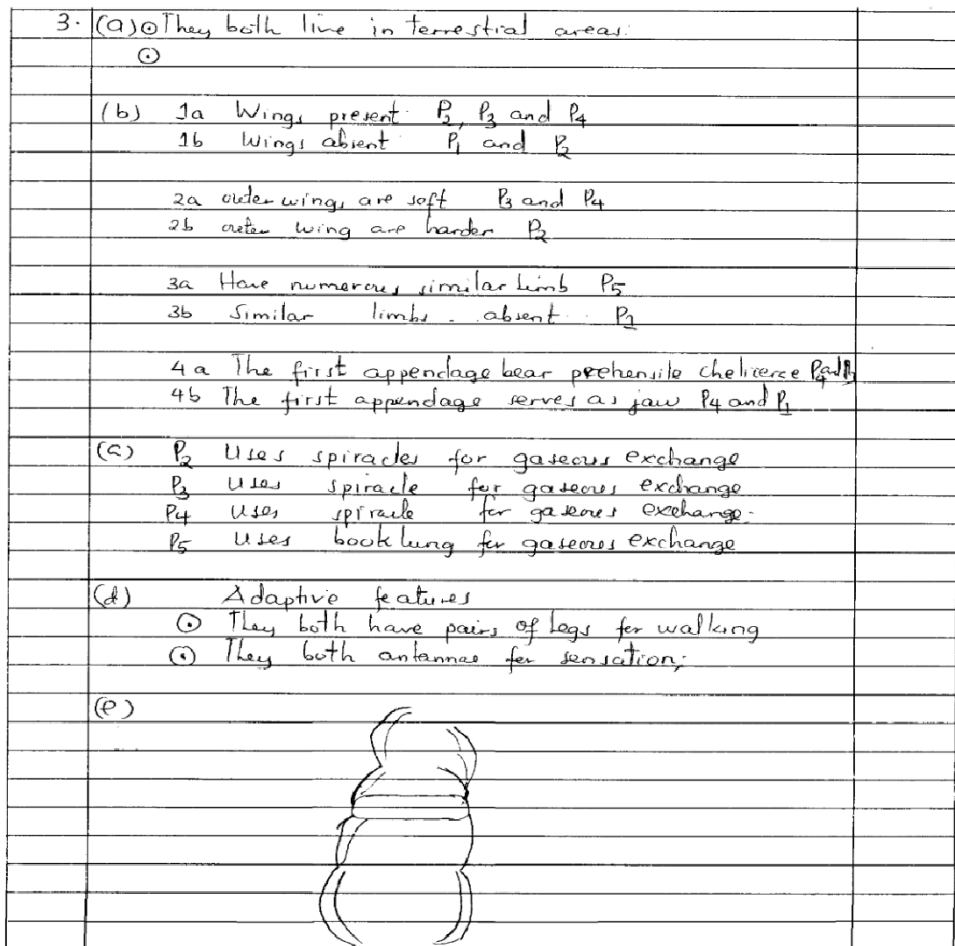 3. (a) ⊙ They both live in terrestial areas.
⊙
(b) 1a Wings present P2, P3 and P4
1b Wings absent P1 and P2
2a outer wings are soft P3 and P4
2b outer wing are harder P2
3a Have numerous similar limb P5
3b Similar limbs absent P1
4a The first appendage bear prehensile chelicerce P4 and
4b The first appendage serves as jaw P4 and P1
(c) P2 Uses spiracles for gaseous exchange
P3 Uses spiracle for gaseous exchange
P4 Uses spiracle for gaseous exchange.
P5 Uses book lung for gaseous exchange
(d) Adaptive features
⊙ They both have pairs of legs for walking
⊙ They both antannae for sensation;
(e)